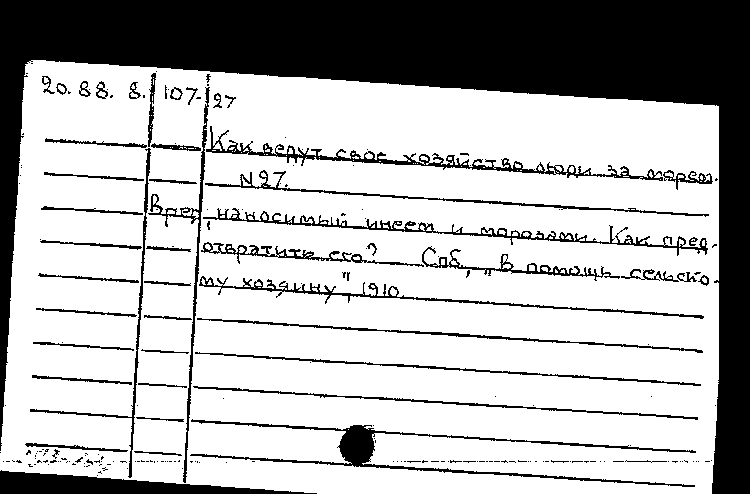 20. 88. 8. 107- 27
Как ведут свое хозяйство люди за морем.
N27.
Вред, наносимый инеем и морозами. Как пред-
отвратить его? Спб, "В помощь сельско-
му хозяину", 1910.